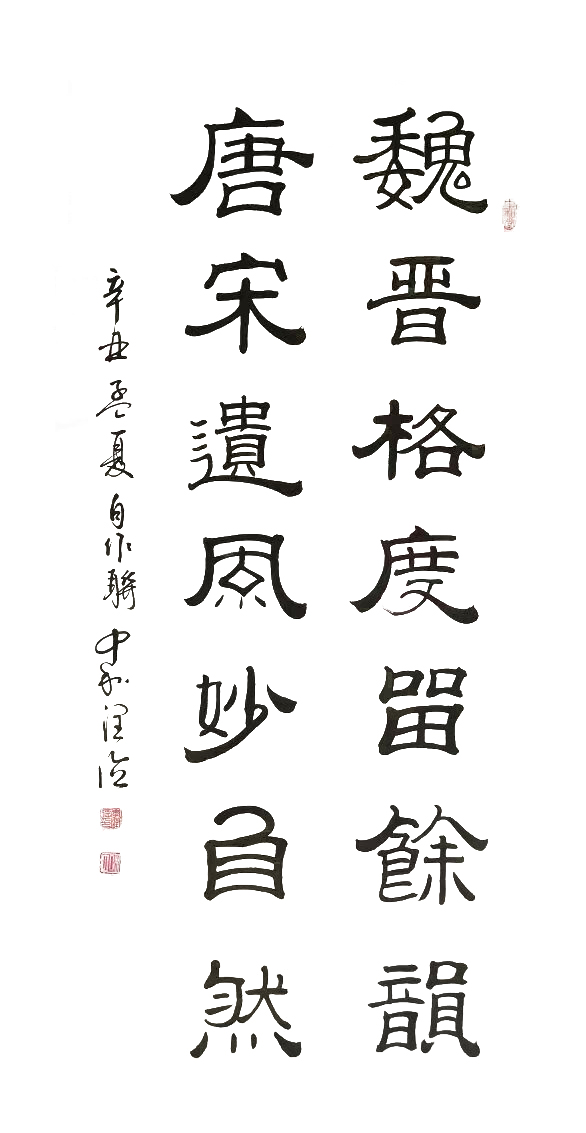 魏晋格度留餘韻
唐宋遺風妙自然
辛丑孟夏自作聯中和潤德